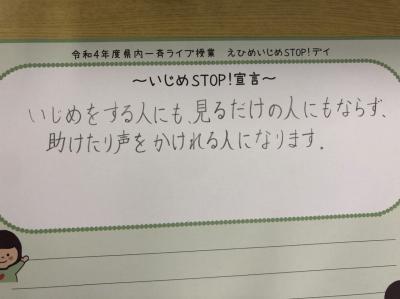 令和4年度県内一斉ライブ授業　えひめいじめSTOP!デイ
～いじめSTOP!宣言～
いじめをする人にも、見るだけの人にもならず、
助けたり声をかけれる人になります.